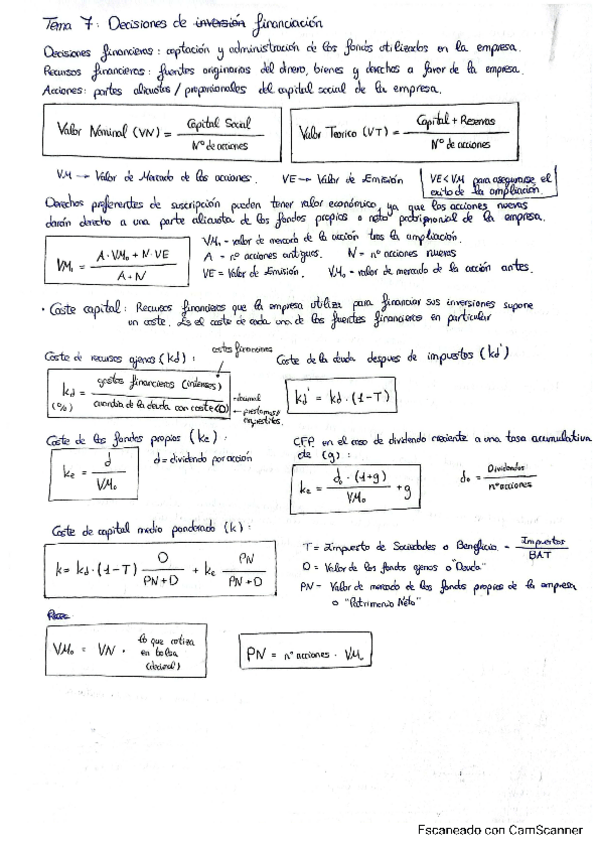 Tema 7: Decisiones de inversión financiación
Decisiones financieras: captación y administración de los fondos utilizados en la empresa.
Recursos financieros: fuentes originarias del dinero, bienes y derechos a favor de la empresa.
Acciones: partes alicuotas / proporcionales del capital social de la empresa.
Valor Nominal (VN) = Capital Social / Nº de acciones
Valor Teorico (VT) = Capital + Reservas / Nº de acciones
VM → Valor de Mercado de las acciones. VE → Valor de Emisión
VE < VM para asegurarse el exito de la ampliación.
Derechos preferentes de suscripción pueden tener valor económico, ya que las acciones nuevas
darán derecho a una parte alicuota de los fondos propios o neto patrimonial de la empresa.
VM₁ = A · VM₀ + N · VE / A + N
VM₁ = valor de mercado de la acción tras la ampliación.
A = nº acciones antiguas. N = nº acciones nuevas
VE = Valor de Emisión. VM₀ = valor de mercado de la acción antes.
· Coste capital: Recursos financieros que la empresa utiliza para financiar sus inversiones supone
un coste. Es el coste de cada una de las fuentes financieras en particular
Coste de recursos ajenos (kd): costes financieros
kd (%) = gastos financieros (intereses) / cuantía de la deuda con coste (D)
préstamos/
Coste de la deuda despues de impuestos (kd')
kd' = kd · (1-T)
Coste de los fondos propios (ke):
ke = d / VM₀
d = dividendo por acción
C.F.P. en el caso de dividendo creciente a una tasa acumulativa
de (g):
ke = d₀ · (1+g) / VM₀ + g
d₀ = Dividendos / nº acciones
Coste de capital medio ponderado (k):
k = kd · (1-T) D / PN + D + ke PN / PN + D
T = Impuesto de Sociedades o Beneficio = Impuestos / BAT
D = Valor de los fondos ajenos o "Deuda"
PN = Valor de mercado de los fondos propios de la empresa
o "Patrimonio Neto"
VM₀ = VN · lo que cotiza en bolsa (decimal)
PN = nº acciones · VM₀
Escaneado con CamScanner